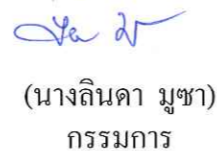 (นางลินดา มูซา)
กรรมการ